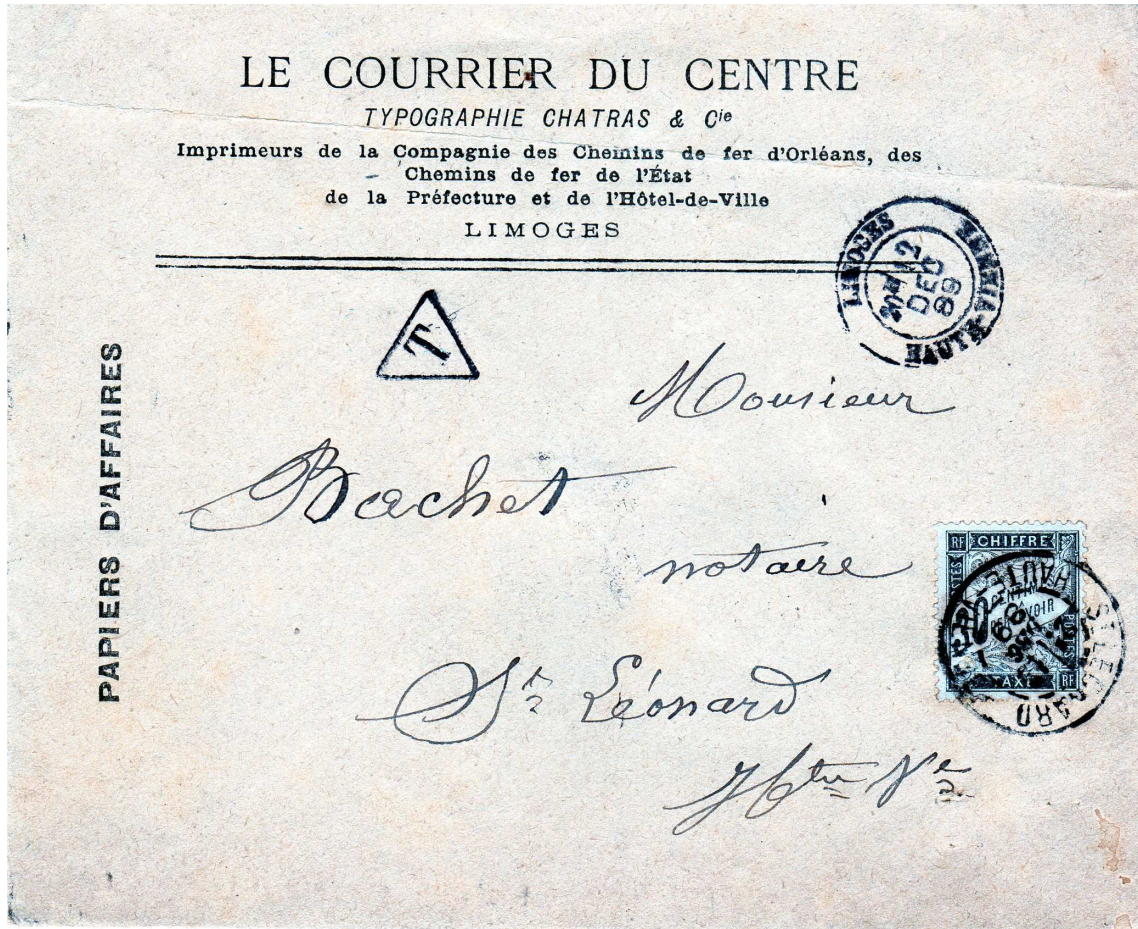 LE COURRIER DU CENTRE
TYPOGRAPHIE CHATRAS & Cie
Imprimeurs de la Compagnie des Chemins de fer d'Orléans, des
Chemins de fer de l'État
de la Préfecture et de l'Hôtel-de-Ville
LIMOGES
LIMOGES
12
DEC
89
HAUTE-VIENNE
T
PAPIERS D'AFFAIRES
Monsieur
Bachet
notaire
St Léonard
Hte Vne
RF CHIFFRE
POSTES
10
TAXE RF
ST LEONARD
HAUTE